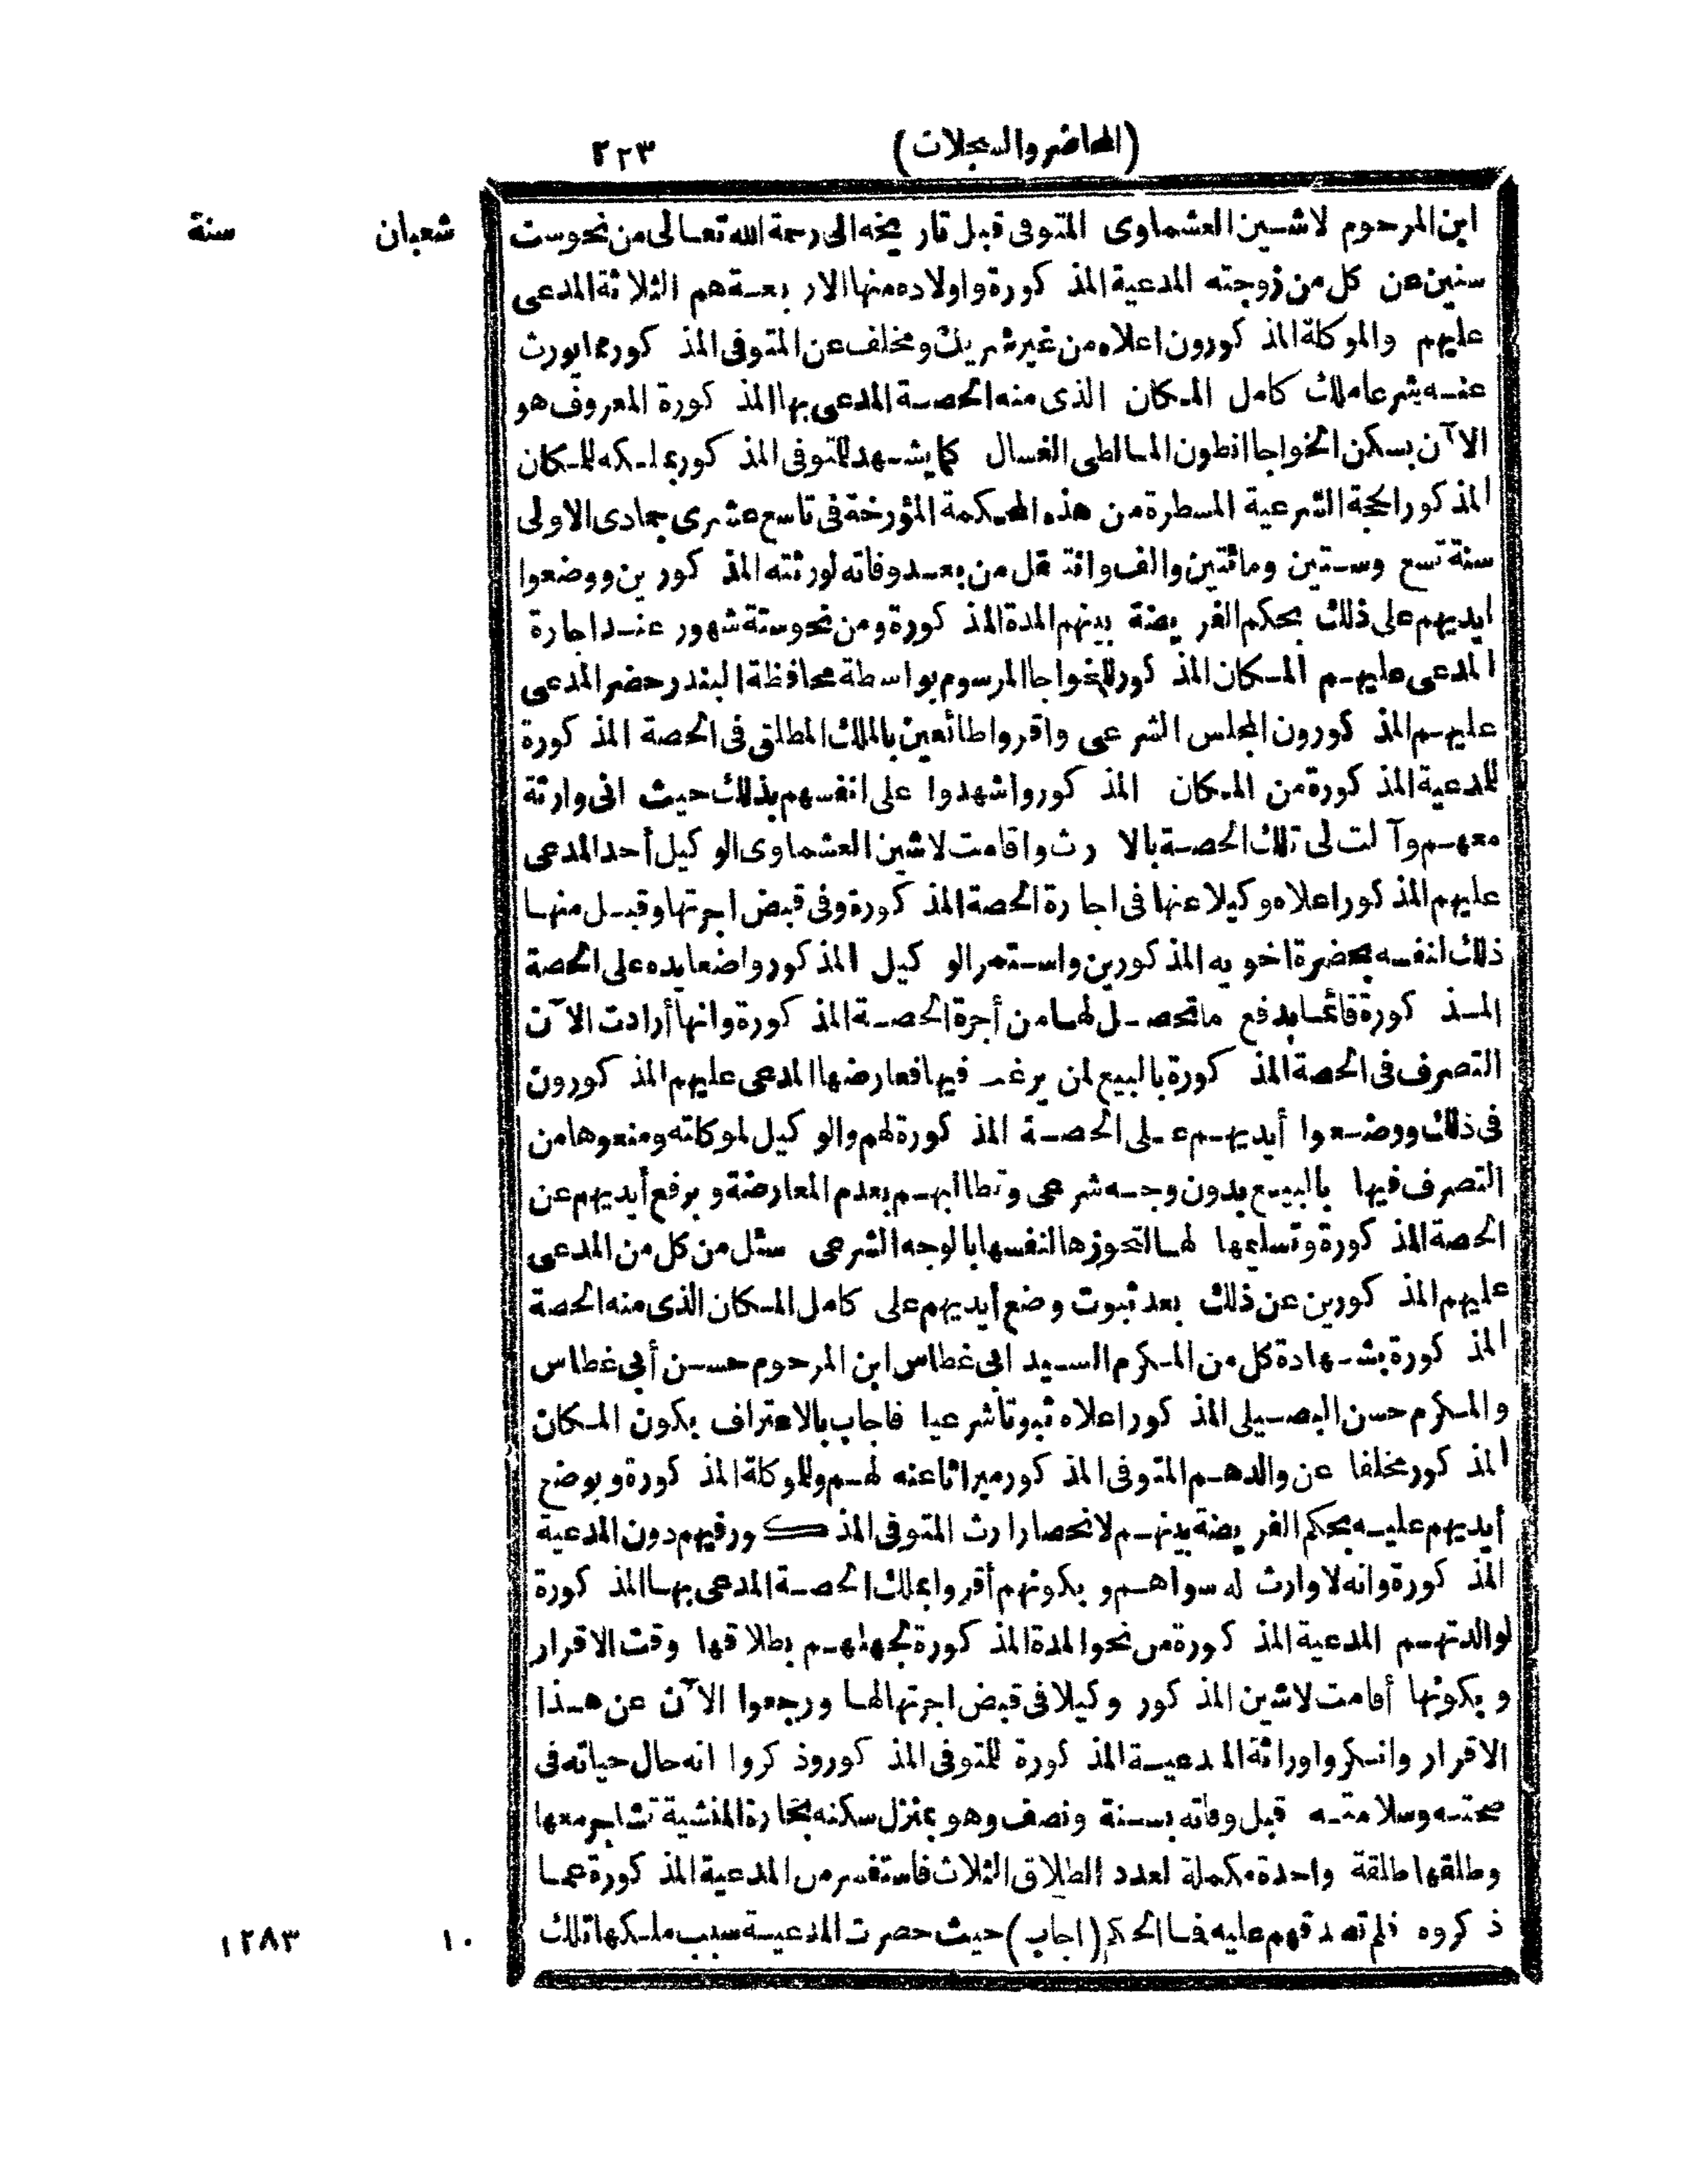 (المحاضر والسجلات) ٢٢٣
شعبان سنة
ابن المرحوم لاشين العشماوى المتوفى قبل تاريخه الى رحمة الله تعالى من نحو ست
سنين عن كل من زوجته المدعية المذكورة واولاده منها الاربعة هم الثلاثة المدعى
عليهم والموكلة المذكورون اعلاه من غير شريك ومخلف عن المتوفى المذكور مما يورث
عنه شرعا ملك كامل المكان الذى منه الحصة المدعى بها المذكورة المعروف هو
الآن بسكن الخواجا انطون المالطى الغسال كما يشهد للتوفى المذكور بملكه للمكان
المذكور الحجة الشرعية المسطرة من هذه المحكمة المؤرخة فى تاسع عشرى جمادى الاولى
سنة تسع وستين ومائتين والف وانتقل من بعد وفاته لورثته المذكورين ووضعوا
ايديهم على ذلك بحكم الفريضة بينهم المدة المذكورة ومن نحو ستة شهور عند اجارة
المدعى عليهم المكان المذكور للخواجا المرسوم بواسطة محافظة البندر حضر المدعى
عليهم المذكورون المجلس الشرعى واقروا طائعين بالملك المطلق فى الحصة المذكورة
للمدعية المذكورة من المكان المذكور واشهدوا على انفسهم بذلك حيث انى وارثة
معهم وآلت لى تلك الحصة بالارث واقامت لاشين العشماوى الوكيل أحد المدعى
عليهم المذكور اعلاه وكيلا عنها فى اجارة الحصة المذكورة وفى قبض اجرتها وقبل منها
ذلك لنفسه بحضرة اخويه المذكورين واستمر الوكيل المذكور واضعا يده على الحصة
المذكورة قائما بدفع ما تحصل لها من أجرة الحصة المذكورة وانها أرادت الآن
التصرف فى الحصة المذكورة بالبيع لمن يرغب فيها فعارضها المدعى عليهم المذكورون
فى ذلك ووضعوا أيديهم على الحصة المذكورة لهم والوكيل لموكلته ومنعوها من
التصرف فيها بالبيع بدون وجه شرعى وتطالبهم بعدم المعارضة وبرفع أيديهم عن
الحصة المذكورة وتسليمها لها لتحوزها لنفسها بالوجه الشرعى سئل من كل من المدعى
عليهم المذكورين عن ذلك بعد ثبوت وضع أيديهم على كامل المكان الذى منه الحصة
المذكورة بشهادة كل من المكرم السيد ابى غطاس ابن المرحوم حسن أبى غطاس
والمكرم حسن البصيلى المذكور اعلاه ثبوتا شرعيا فاجاب بالاعتراف بكون المكان
المذكور مخلفا عن والدهم المتوفى المذكور ميراثا عنه لهم وللموكلة المذكورة وبوضع
أيديهم عليه بحكم الفريضة بينهم لانحصار ارث المتوفى المذكور فيهم دون المدعية
المذكورة وانه لا وارث له سواهم وبكونهم أقروا بملك الحصة المدعى بها المذكورة
لوالدتهم المدعية المذكورة من نحو المدة المذكورة لجهلهم بطلاقها وقت الاقرار
وبكونها أقامت لاشين المذكور وكيلا فى قبض اجرتها لها ورجعوا الآن عن هذا
الاقرار وانكروا وراثة المدعية المذكورة للتوفى المذكور وذكروا انه حال حياته فى
صحته وسلامته قبل وفاته بسنة ونصف وهو بمنزل سكنه بحارة المنشية تشاجر معها
وطلقها طلقة واحدة مكملة لعدد الطلاق الثلاث فاستفسر من المدعية المذكورة عما
ذكروه فلم تصدقهم عليه فما الحكم (اجاب) حيث حصرت المدعية سبب ملكها تلك
١٠ ١٢٨٣